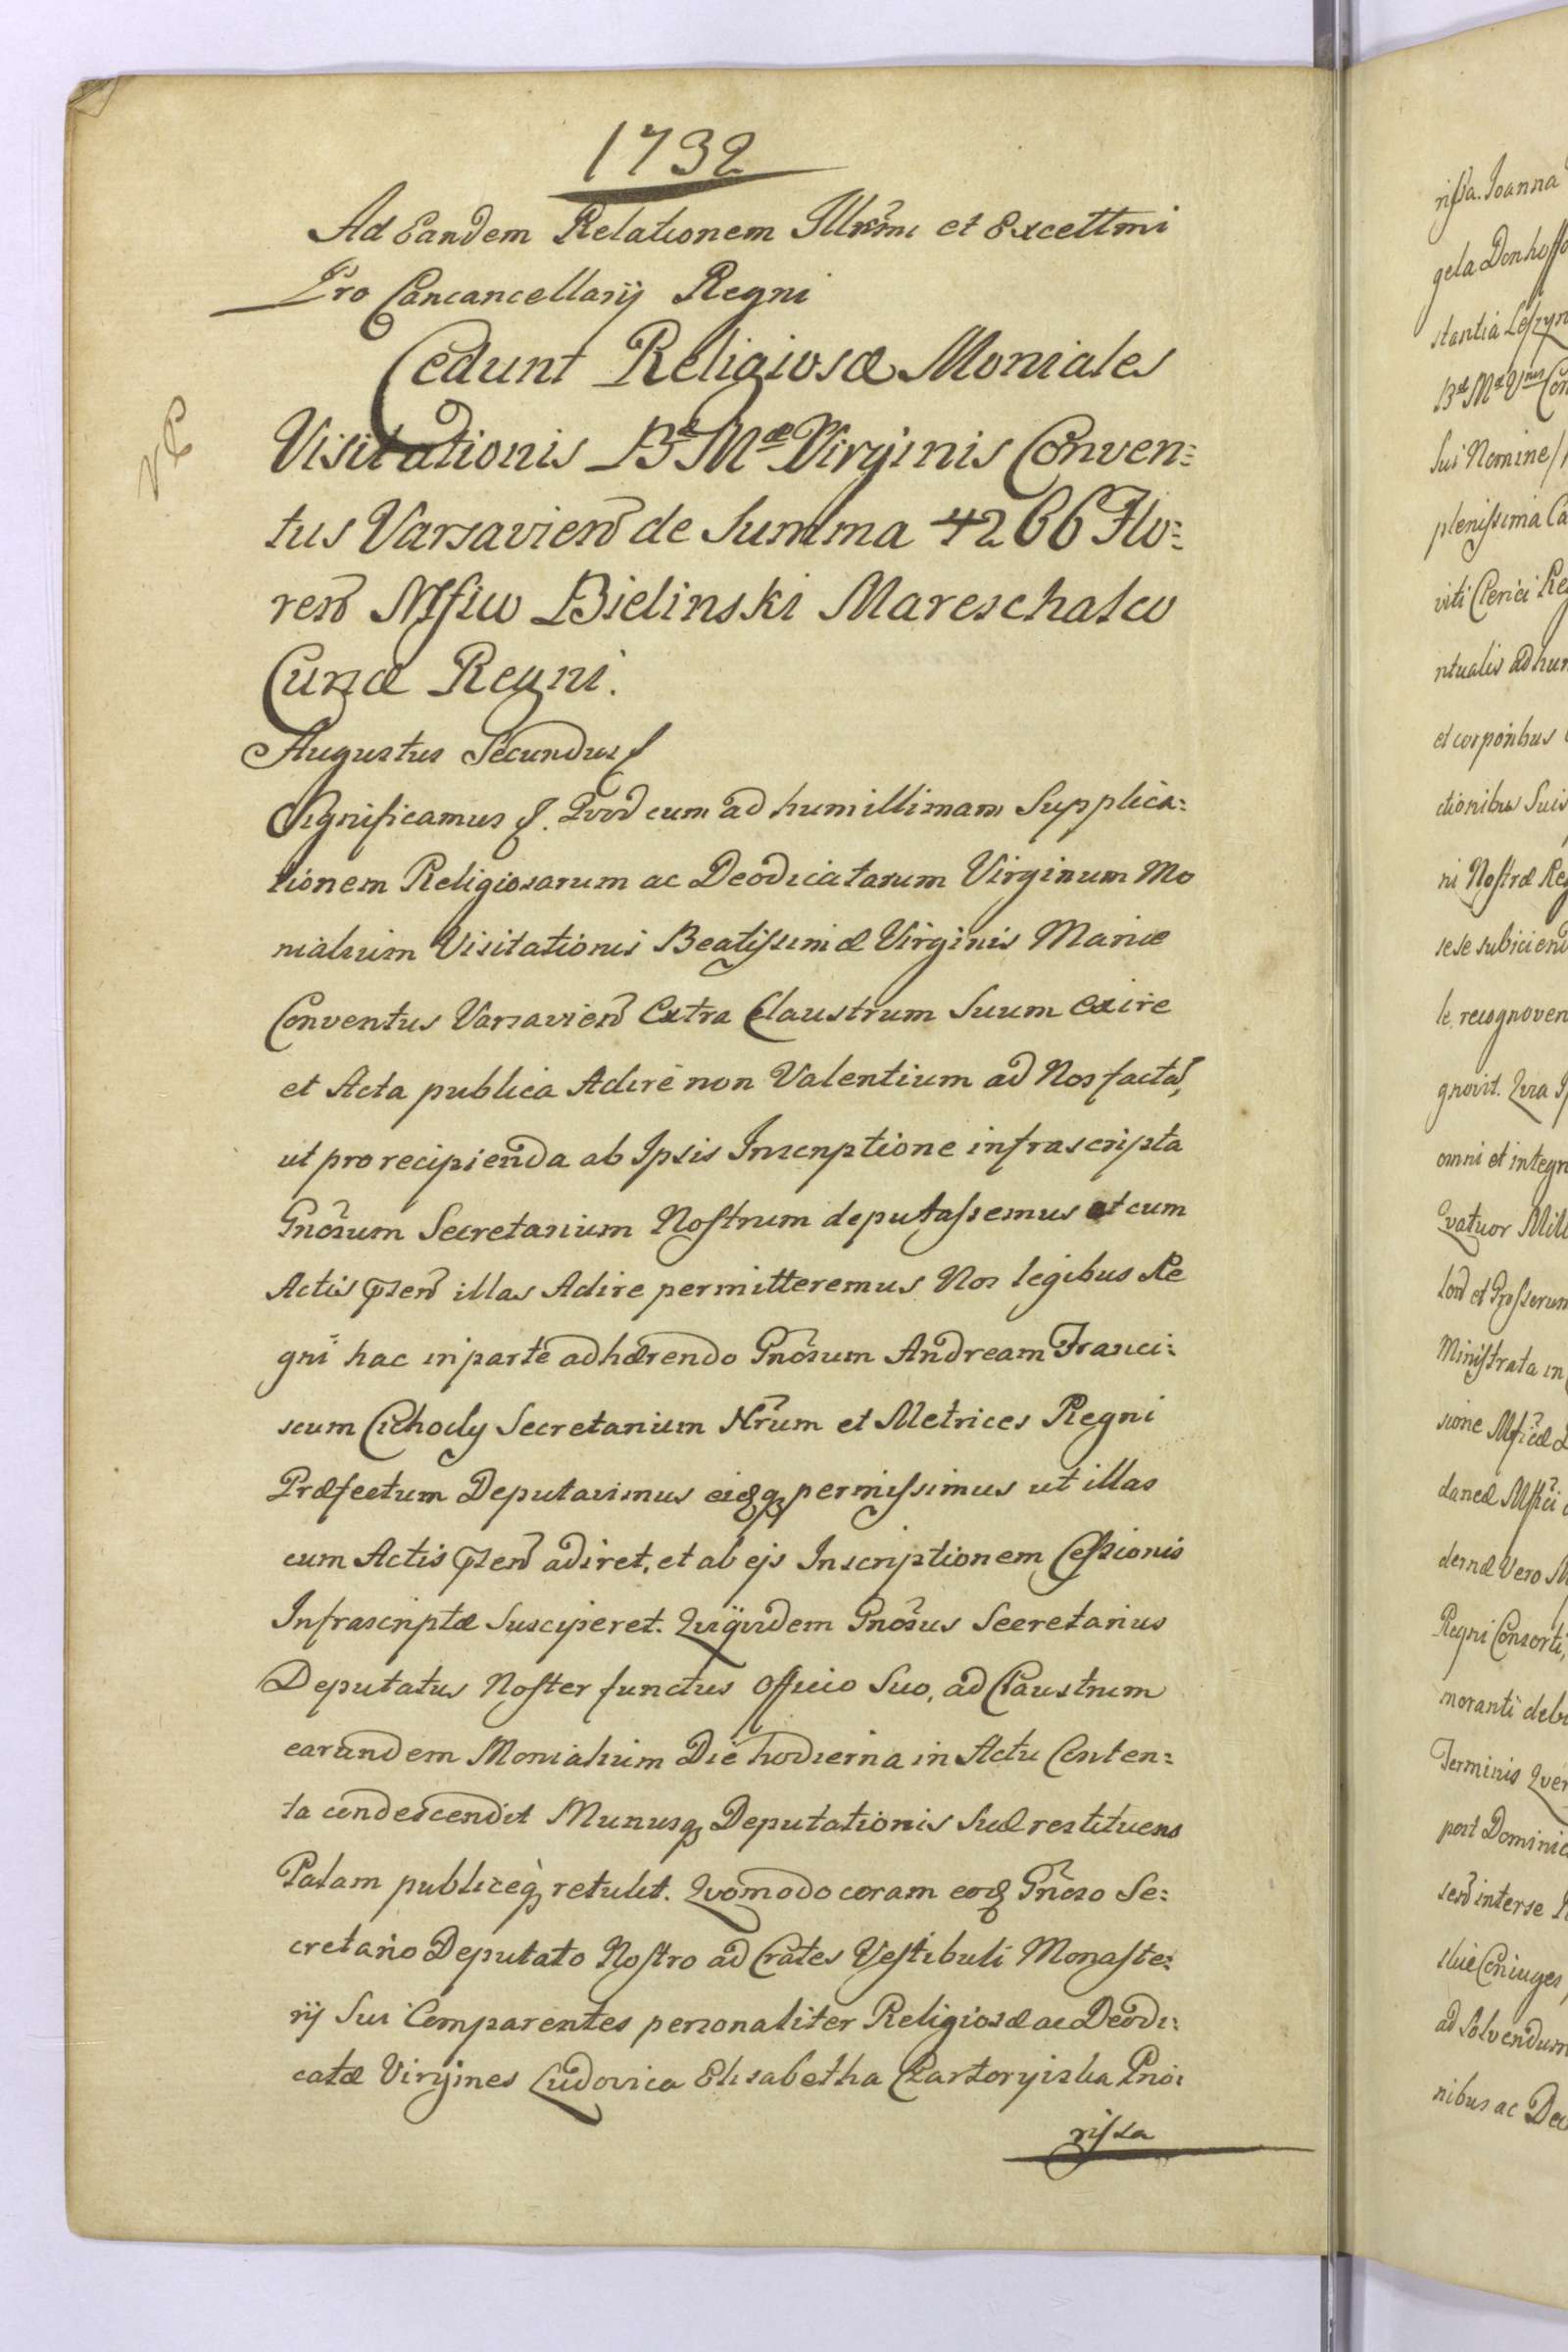 1732
Ad Eandem Relationem Illr̃mi et Excellmi
Pro Cancancellarij Regni
Cedunt Religiosæ Moniales
Visitationis Bæ Mæ Virginis Conven=
tus Varsavien de Summa 4266 Flo=
ren Mfico Bielinski Mareschalco
Curiæ Regni.
Augustus Secundus
Significamus Quod cum ad humillimam Supplica=
tionem Religiosarum ac Deodicatarum Virginum Mo
nialium Visitationis Beatissimæ Virginis Mariæ
Conventus Varsavien Extra Claustrum Suum Exire
et Acta publica Adire non Valentium ad Nos facta,
ut pro recipienda ab Ipsis Inscriptione infrascripta
Gnõsum Secretarium Nostrum deputassemus et cum
Actis p̃sen illas Adire permitteremus Nos legibus Re
gni hac in parte adhærendo Gnõsum Andream Franci=
scum Cichocky Secretarium Nr̃um et Metrices Regni
Præfectum Deputavimus eidq permissimus ut illas
cum Actis p̃sen adiret, et ab ejs Inscriptionem Cessionis
Infrascriptæ Susciperet. Quiquidem Gnõsus Secretarius
Deputatus Noster functus Officio Suo, ad Claustrum
earundem Monialium Die hodierna in Actu Conten=
ta condescendit Munusq Deputationis Suæ restituens
Palam publiceq retulit. Quomodo coram eod Gñoso Se=
cretario Deputato Nostro ad Crates Vestibuli Monaste=
rij Sui Comparentes personaliter Religiosæ ac Deodi=
catæ Virgines Ludovica Elisabetha Czartoryiska Prio=
rissa
rissa. Joanna
gela Donhoffo
stantia
Bæ Mæ Vnis Con
Sui Nomine
plenissima Ca
viti Clerici Reg
ritualis ad hun
et corporibus
ctionibus Suis
ni Nostræ Reg
sese subiicien
le, recognoven
gnovit. Quia
omni et integr
Quatuor Mill
lon et Grosserum
Ministrata in
sione Mficæ
daneæ Mfici
dernæ Vero M
Regni Consorti,
moranti deb
Terminis Quor
post Dominic
sen interse
sue Coniuges,
ad Solvendum
nibus ac Dec